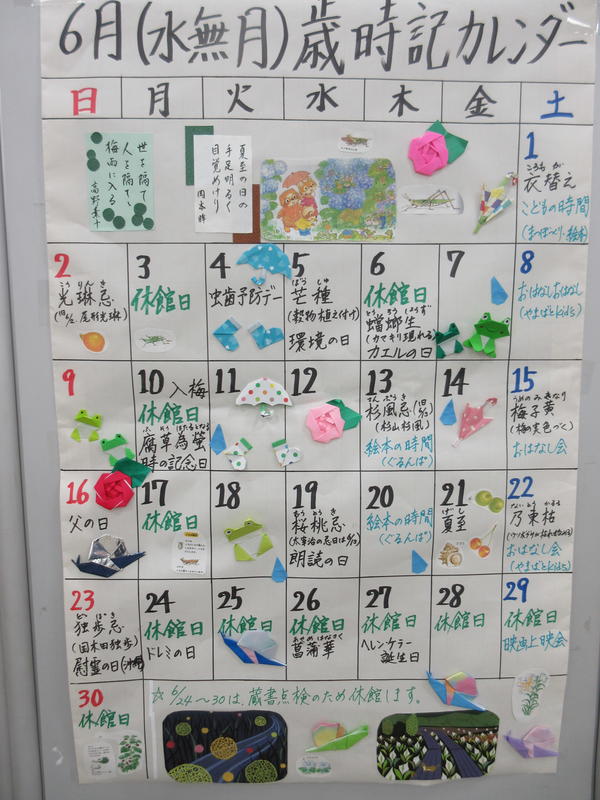 6月(水無月)歳時記カレンダー
日 月 火 水 木 金 土
世を隔て
人を隔て
梅雨に入る
高野素十
夏至の日の
手足明るく
目覚めけり
岡本眸
1
ころもがえ
衣替え
こどもの時間
2
こうりんき
光琳忌
尾形光琳)
3
休館日
4
虫歯予防デー
5
ぼうしゅ
芒種
(穀物植え付け)
環境の日
6
休館日
とうろうしょうず
蟷螂生
(カマキリ現れる)
カエルの日
7
8
おはなしおはなし
(やまばとKids)
9
10 入梅
休館日
腐草為螢
時の記念日
11
12
13
さんぷうき
杉風忌
(杉山杉風)
絵本の時間
(ぐるんぱ)
14
15
うめのみきなり
梅子黄
(梅の実色づく)
おはなし会
16
父の日
17
休館日
18
19
おうとうき
桜桃忌
朗読の日
20
絵本の時間
(ぐるんぱ)
21
げし
夏至
22
乃東枯
おはなし会
(やまばとKids)
23
どっぽき
独歩忌
(国木田独歩)
慰霊の日(沖縄)
24
休館日
ドレミの日
25
休館日
26
休館日
菖蒲華
27
休館日
ヘレンケラー
誕生日
28
休館日
29
休館日
映画上映会
30
休館日
☆6/24~30は、蔵書点検のため休館します。